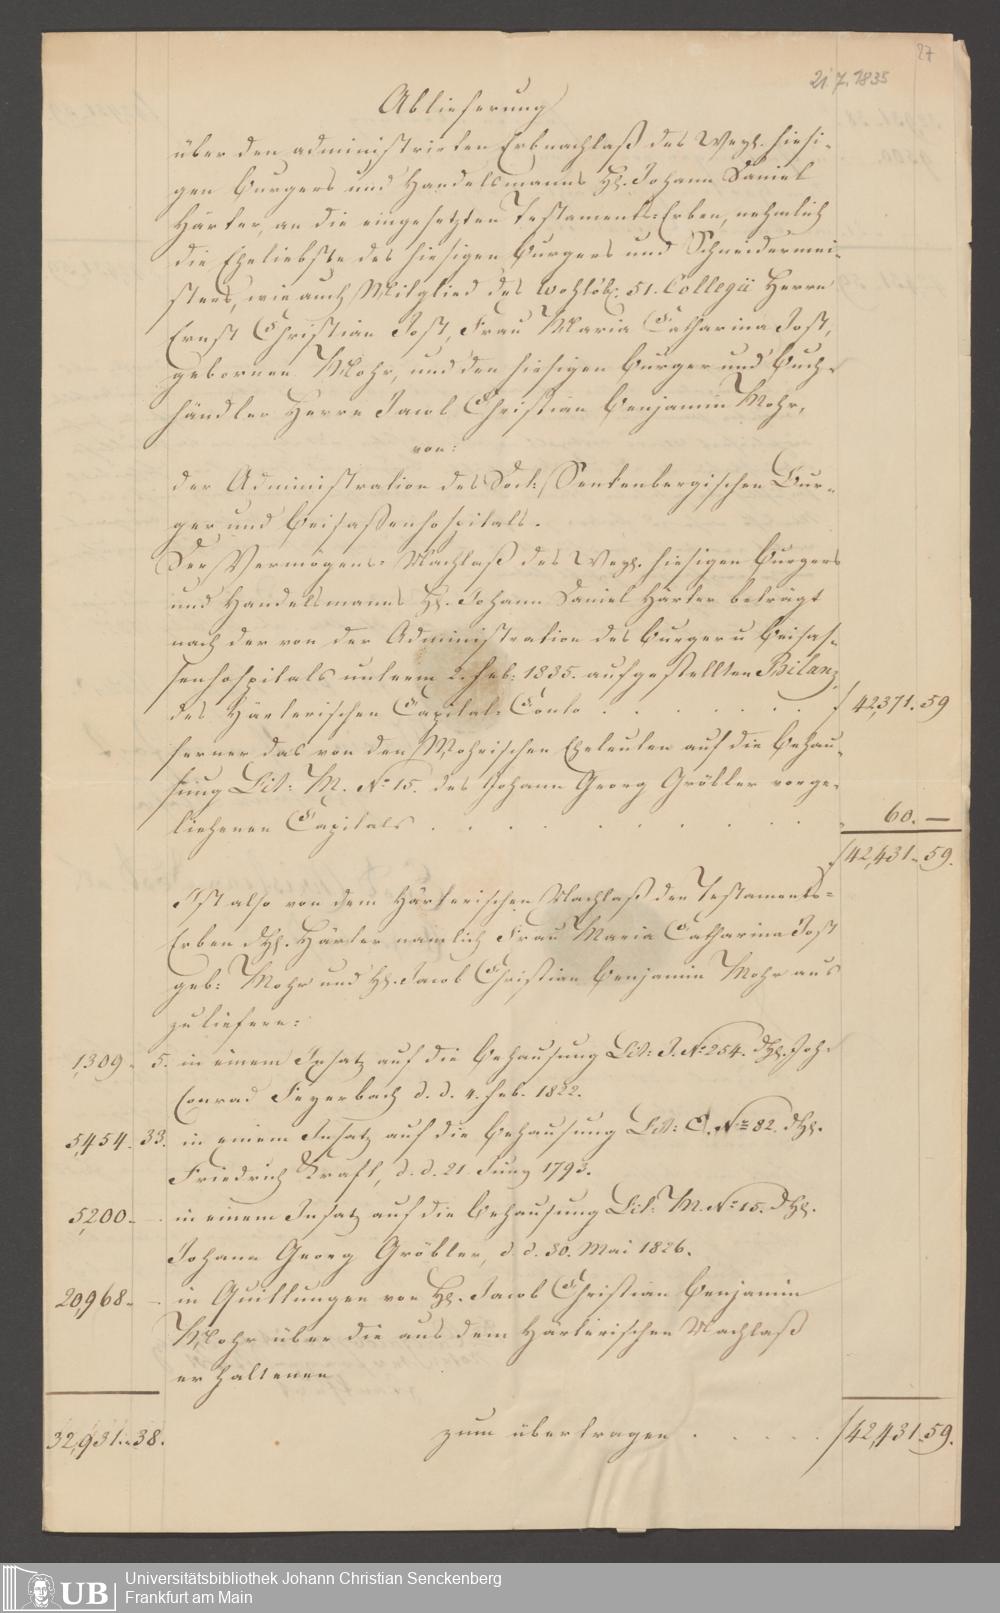 27
21.7.1835
Ablieferung
über den administrirten Erbnachlaß des Wegl. hiesi-
gen Burgers und Handelsmanns H. Johann Daniel
Härter, an die eingesetzten Testaments-Erben, nehmlich
die Eheliebste des hiesigen Burgers und Schneidermei-
sters, wie auch Mitglied des wohllöbl. 51. Collegii Herrn
Ernst Christian Jost, Frau Maria Catharina Jost,
gebornen Mohr, und den hiesigen Burger und Buch-
händler Herrn Jacob Christian Benjamin Mohr,
von:
der Administration des Doct: Senkenbergischen Bur-
ger und Beisaßenhospitals.
Der Vermögens-Nachlaß des Wegl. hiesigen Burgers
und Handelsmanns H. Johann Daniel Härter beträgt
nach der von der Administration des Burger u Beisas-
senhospitals unterm 2. Feb: 1835. aufgestellten Bilanz
des Härterischen Capital-Conto . . . . . . f 42,371. 59
ferner das von den Mohrischen Eheleuten auf die Behau-
sung Lit: M. No 15. des Johann Georg Gröbler vorge-
liehenen Capitals . . . . . . . . . . " 60. —
f 42,431 - 59.
Ist also von dem Härterischen Nachlaß den Testaments-
Erben dH. Härter nämlich Frau Maria Catharina Jost
geb: Mohr und H. Jacob Christian Benjamin Mohr aus
zuliefern:
1,309 - 5. in einem Insatz auf die Behausung Lit: J. No 254. dH. Joh.
Conrad Feyerbach d. d. 4. Feb. 1822.
5,454 - 33. in einem Insatz auf die Behausung Lit: C. No 82. dH.
Friedrich Kraft, d. d. 21 Juny 1793.
5,200 - . in einem Insatz auf die Behausung Lit. M. No 15. dH.
Johann Georg Gröbler, d. d. 30. Mai 1826.
20,968 - . in Quittungen von H. Jacob Christian Benjamin
Mohr über die aus dem Härterischen Nachlaß
erhaltenen
32,931 - 38. zum übertragen . . . . . f 42,431 - 59.
UB Universitätsbibliothek Johann Christian Senckenberg
Frankfurt am Main